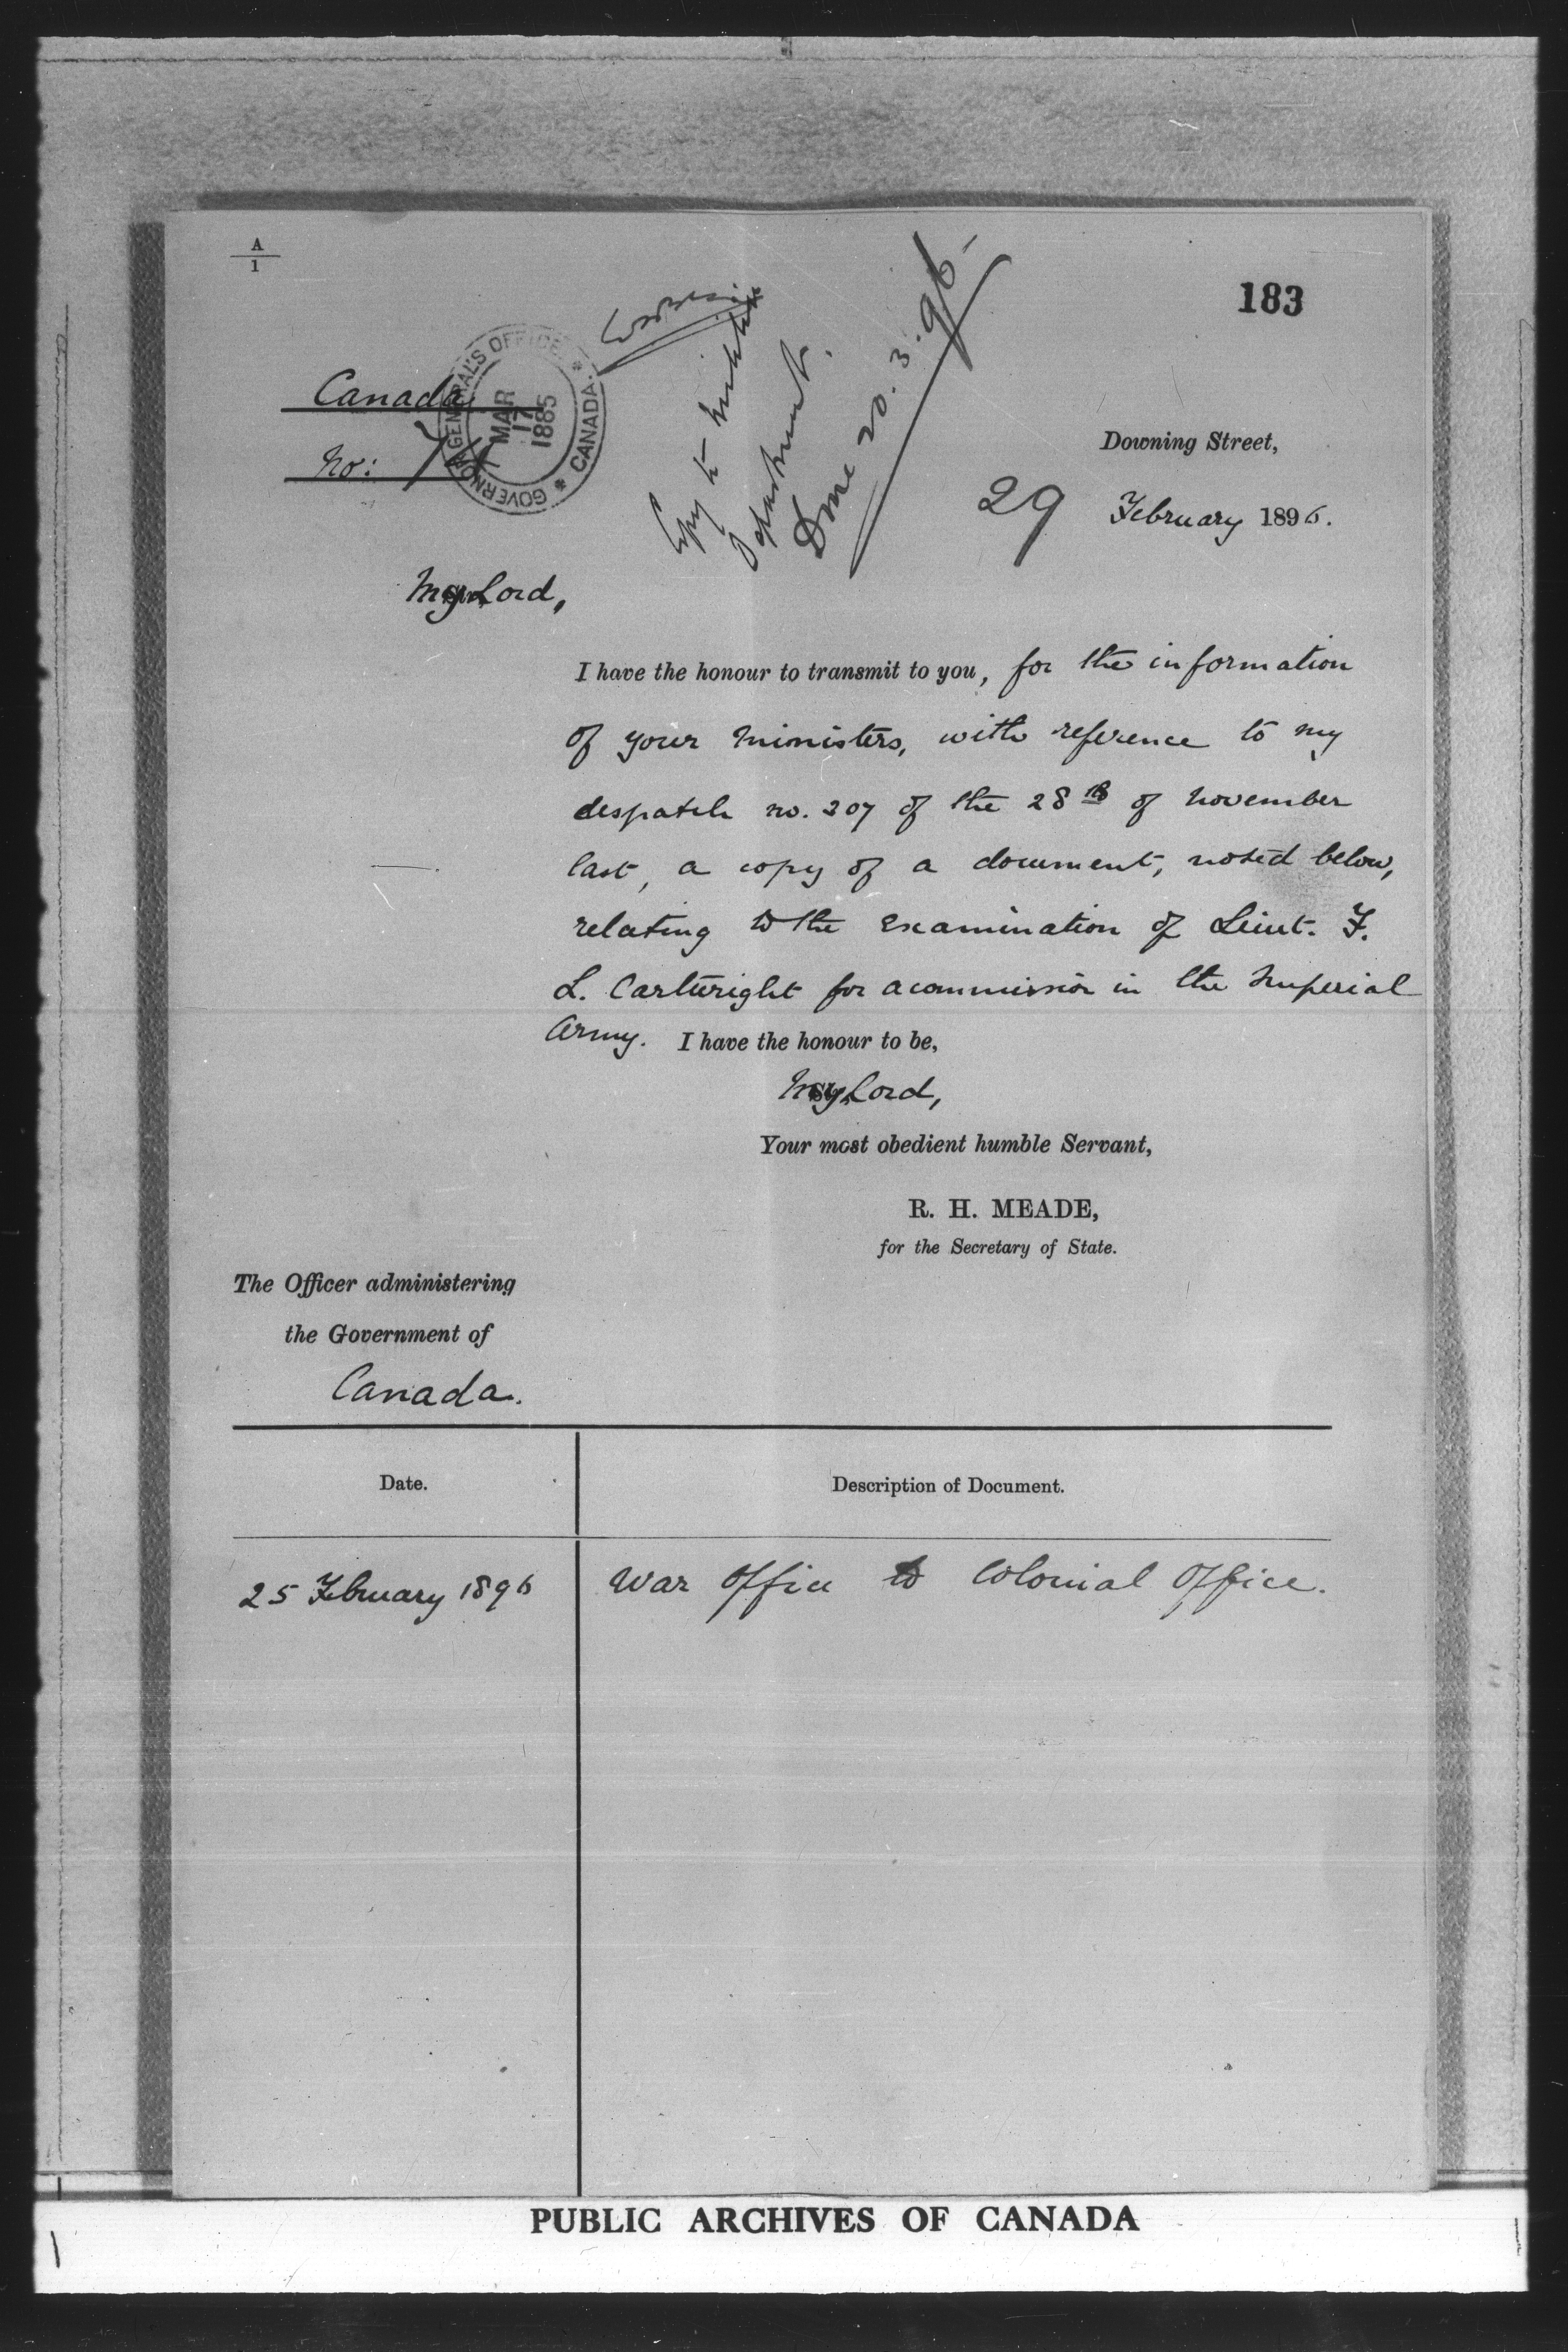 A
1
183
Canada
No:
GOVERNOR GENERAL'S OFFICE * CANADA. *
MAR
17
1885
Copy to Militia
Department.
Done 20.3.96-
Downing Street,
29 February 1896.
My Lord,
I have the honour to transmit to you, for the information
of your Ministers, with reference to my
despatch no. 207 of the 28th of November
last, a copy of a document, noted below,
relating to the examination of Lieut. F.
L. Cartwright for a commission in the Imperial
Army. I have the honour to be,
My Lord,
Your most obedient humble Servant,
R. H. MEADE,
for the Secretary of State.
The Officer administering
the Government of
Canada.
Date.
Description of Document.
25 February 1896
War Office to Colonial Office.
PUBLIC ARCHIVES OF CANADA